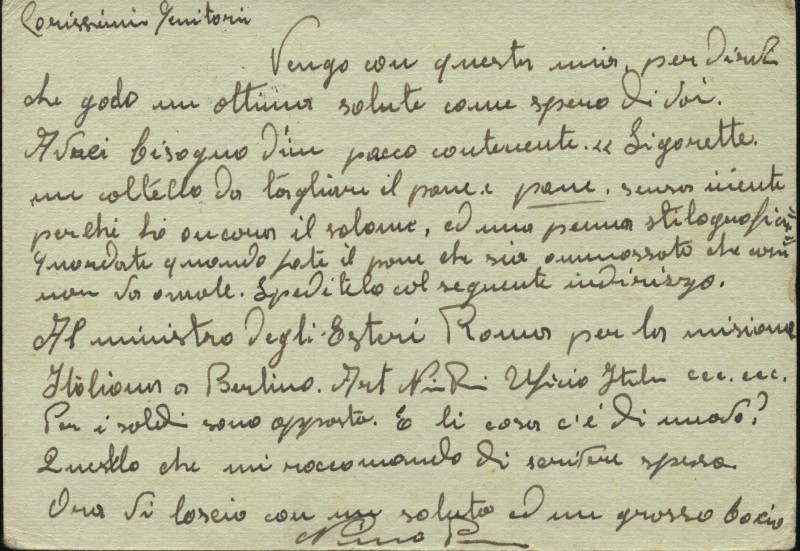 Carissimi Genitori
Vengo con questa mia, per dirvi
che godo un ottima salute come spero di voi.
Avrei bisogno d'un pacco contenente. « Sigarette.
un coltello da tagliare il pane e pane, senza niente
perchè ho ancora il salame, ed una penna stilografica
Guardate quando fate il pane che sia ammassato che così
non va a male. Speditelo col seguente indirizzo.
Al ministro degli Esteri Roma per la misione
Italiana a Berlino. Art Uficio ecc. ecc.
Per i soldi sono apposto. E li cosa c'é di nuovo?
Quello che mi raccomando di scrivere spesso.
Ora vi lascio con un saluto ed un grosso bacio
Nino